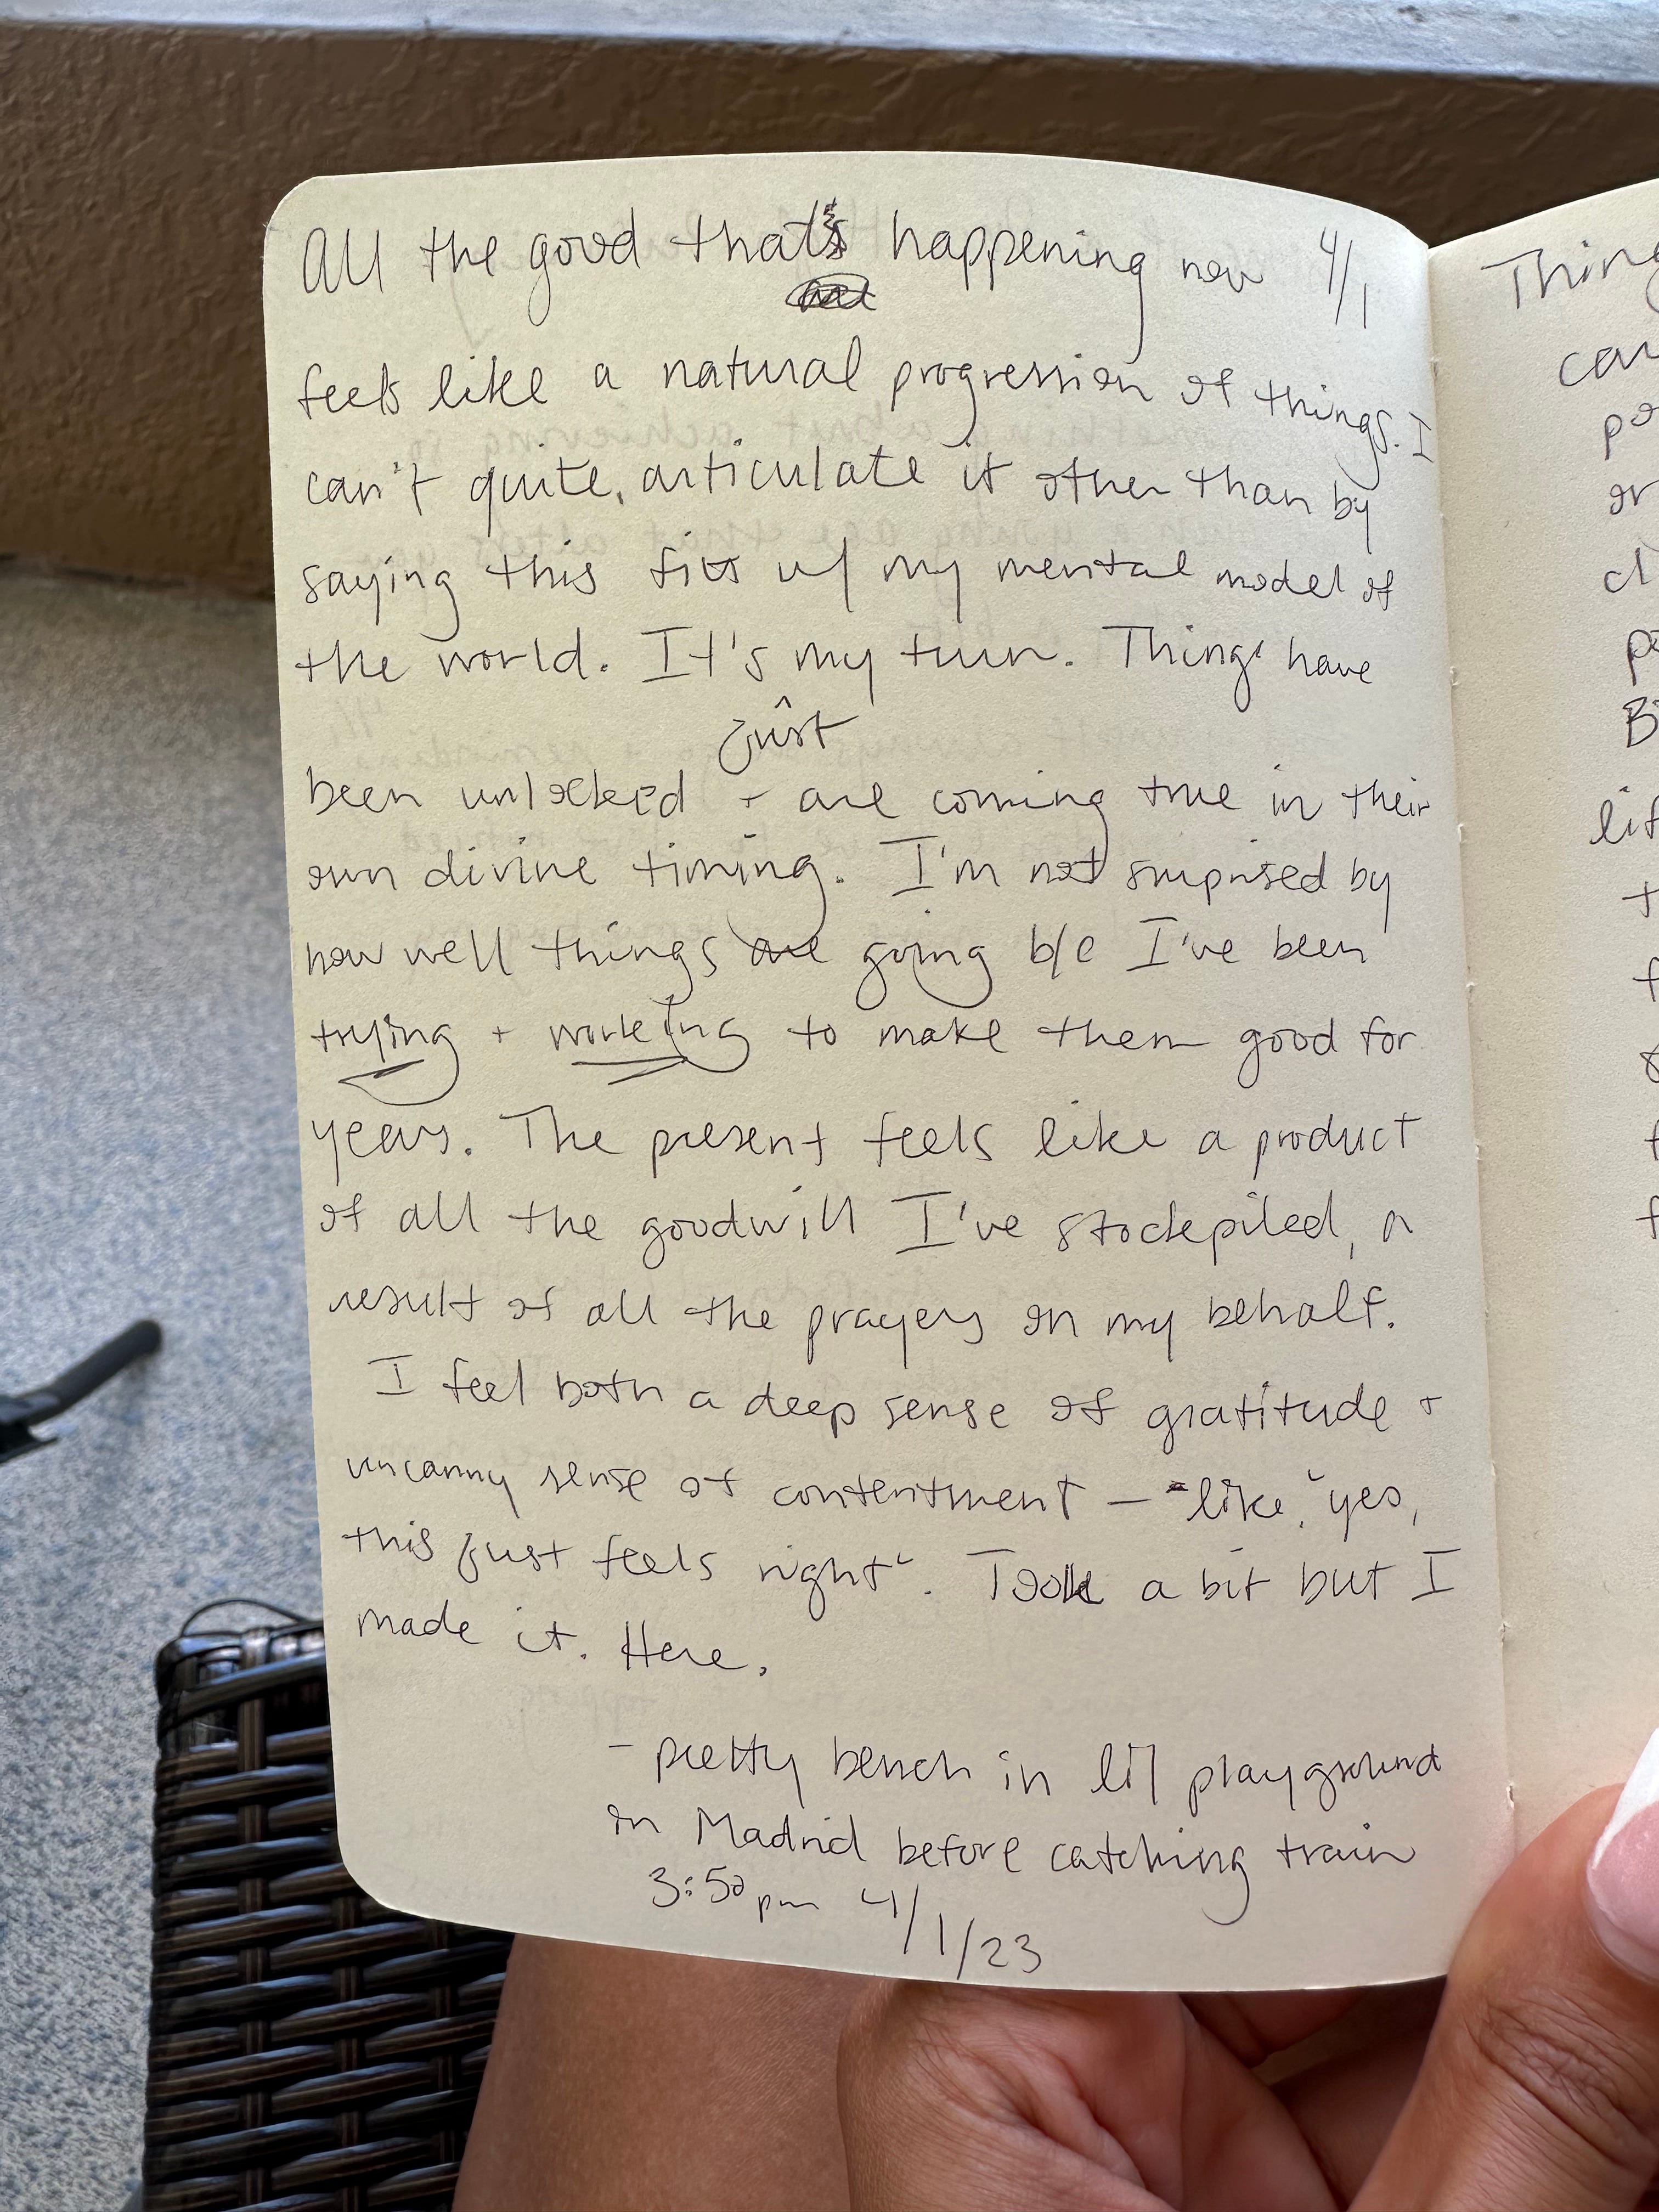 All the good that's happening now 4/1
feels like a natural progression of things. I
can't quite articulate it other than by
saying this fits w/ my mental model of
the world. It's my turn. Things have
just
been unlocked + are coming true in their
own divine timing. I'm not surprised by
how well things are going b/c I've been
trying + working to make them good for
years. The present feels like a product
of all the goodwill I've stockpiled, a
result of all the prayers on my behalf.
I feel both a deep sense of gratitude +
uncanny sense of contentment – like, "yes,
this just feels right". Took a bit but I
made it. Here.
- pretty bench in lil playground
in Madrid before catching train
3:50pm 4/1/23
Thing